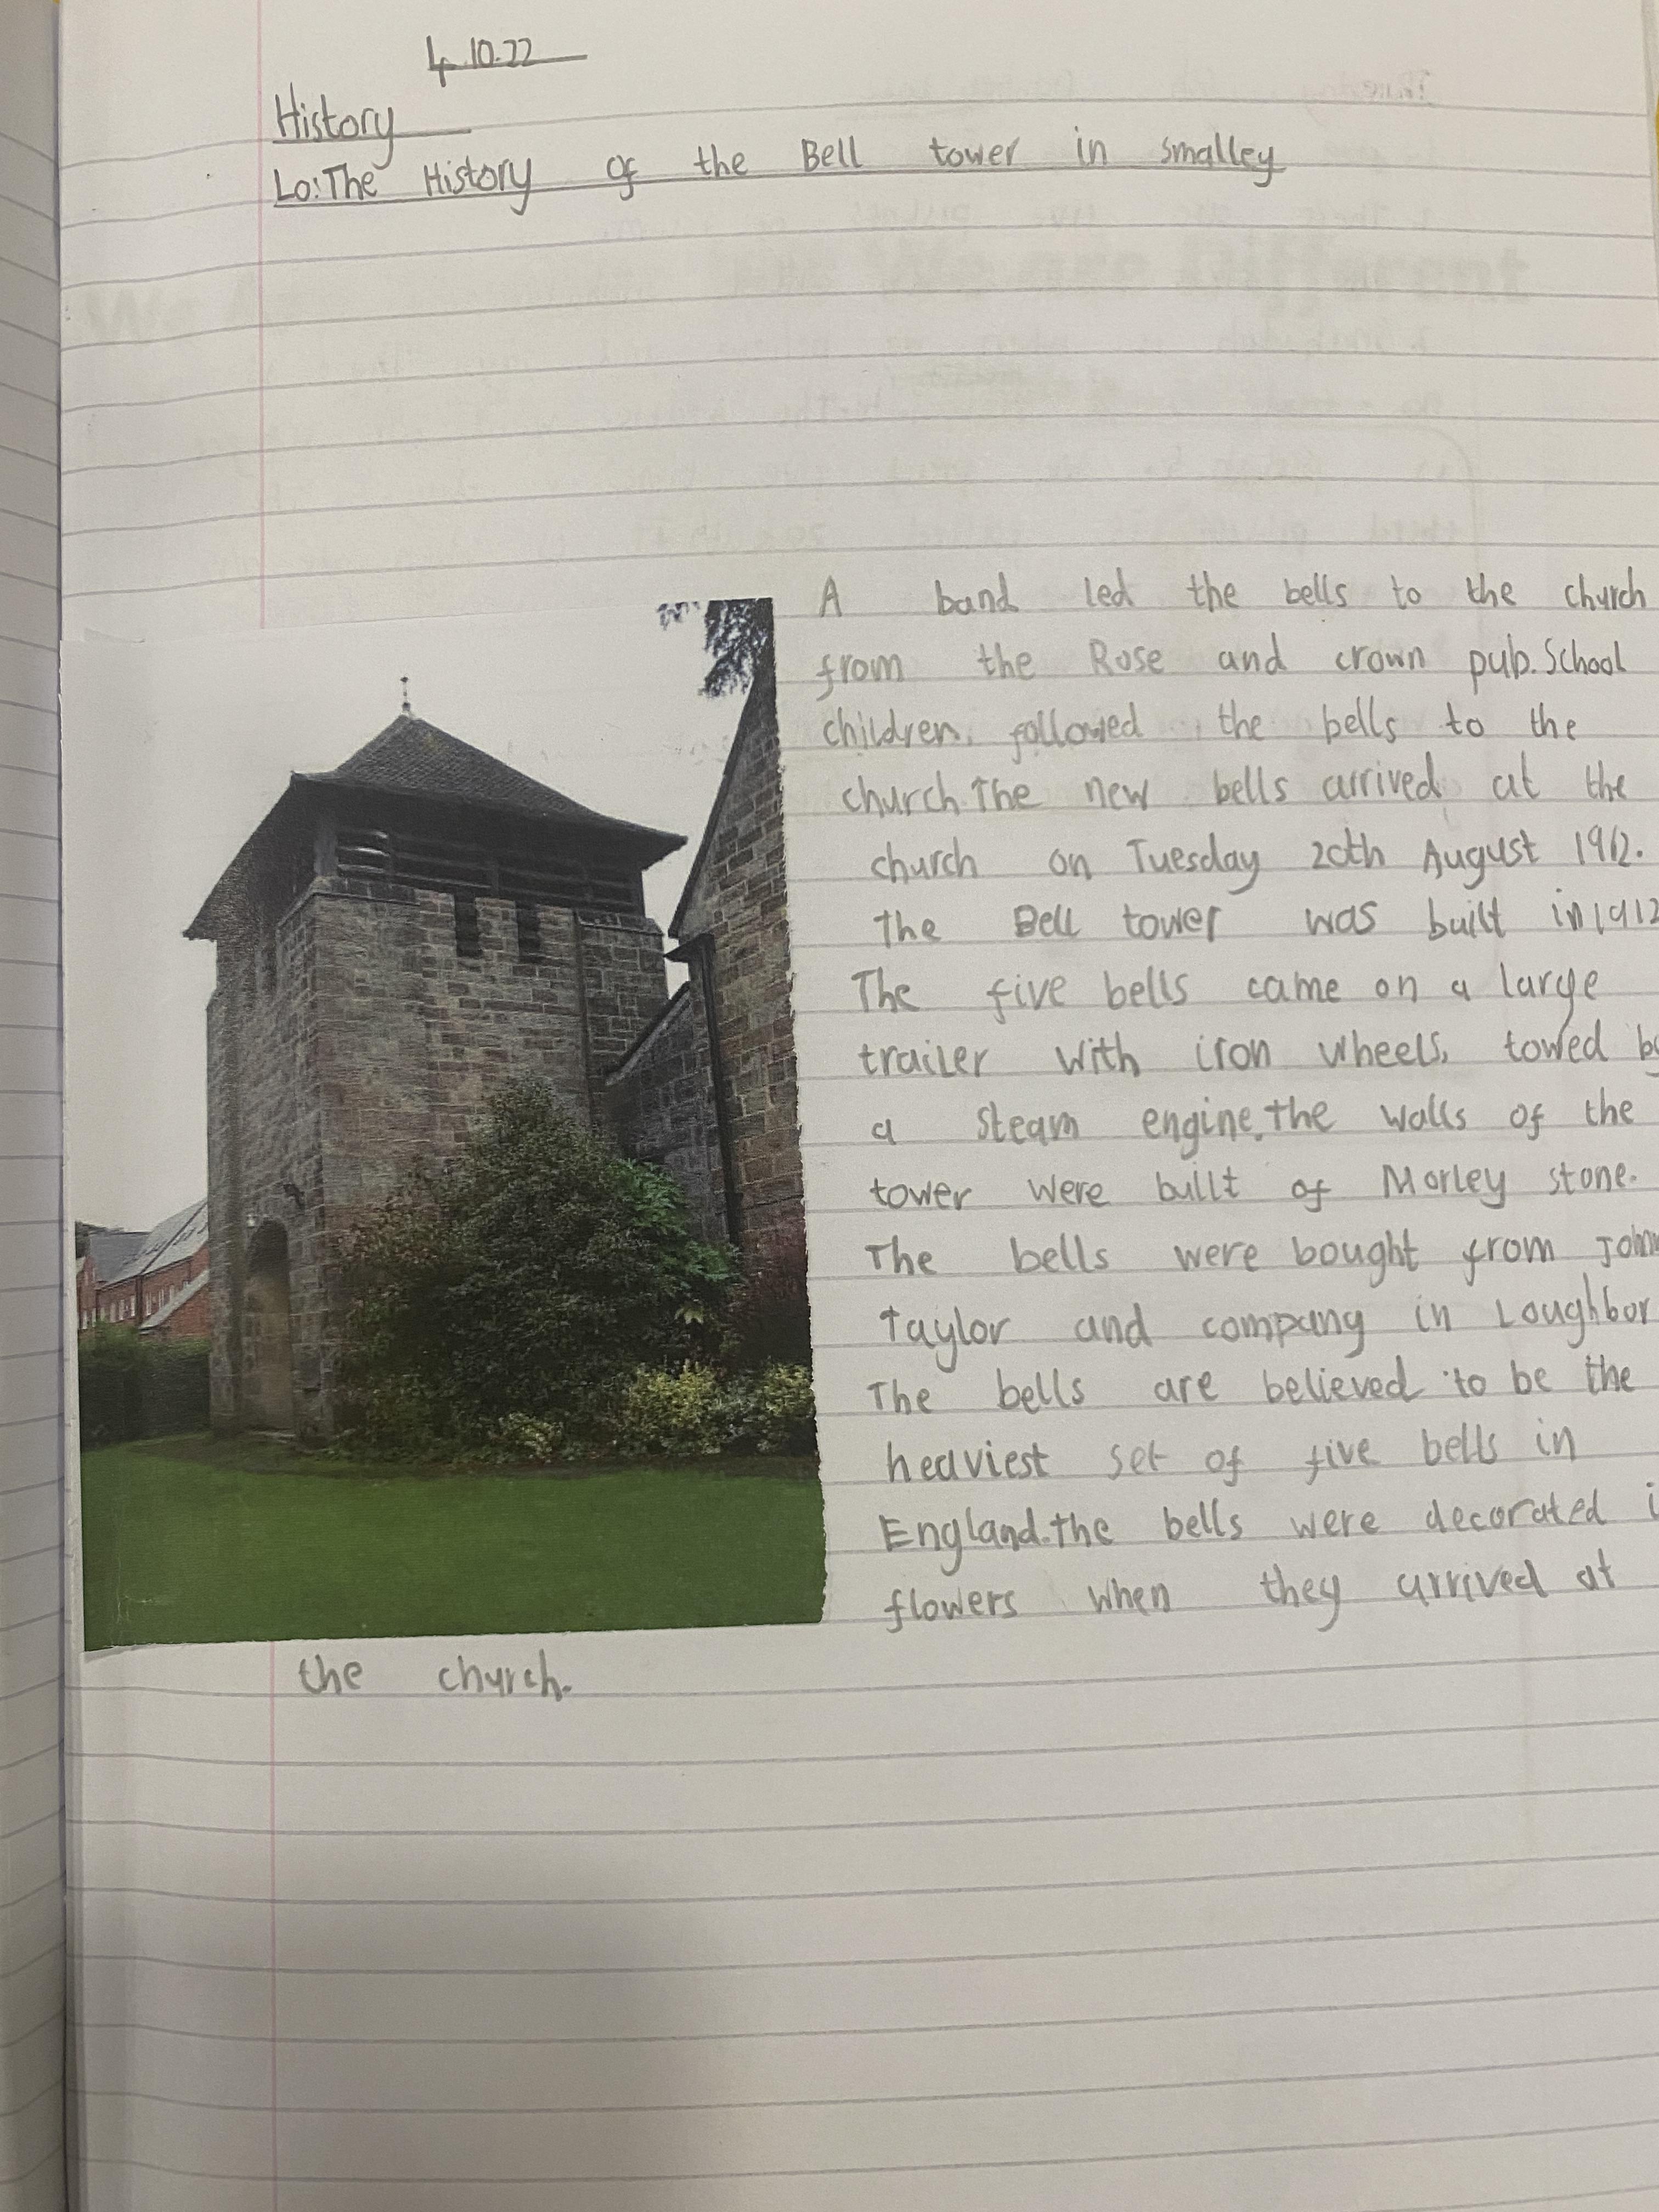 4.10.22
History
Lo: The History of the Bell tower in smalley
A band led the bells to the church
from the Rose and crown pub. School
children followed the bells to the
church. The new bells arrived at the
church on Tuesday 20th August 1912.
The Bell tower was built in 1912
The five bells came on a large
trailer with iron wheels, towed
a steam engine. the walls of the
tower were built of Morley stone.
The bells were bought from John
Taylor and company in Loughbor
The bells are believed to be the
heaviest set of five bells in
England. the bells were decorated i
flowers when they arrived at
the church.